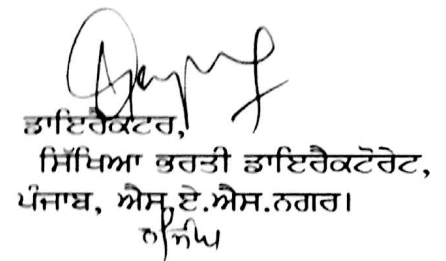 ਡਾਇਰੈਕਟਰ,
ਸਿੱਖਿਆ ਭਰਤੀ ਡਾਇਰੈਕਟੋਰੇਟ,
ਪੰਜਾਬ, ਐਸ.ਏ.ਐਸ.ਨਗਰ।